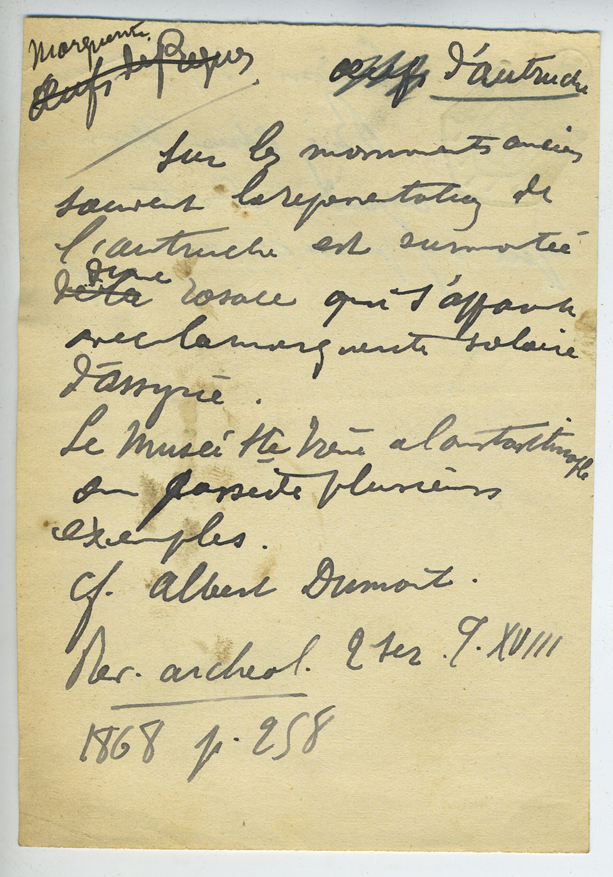 Marguerite
Œufs de Pâques
œufs d'autruche
Sur les monuments anciens
souvent la representation de
l'autruche est surmontée
de la d'une rosace qui s'apparente
avec la marguerite solaire
d'Assyrie.
Le Musée Ste Irène a Constantinople
en possède plusieurs
exemples.
cf. Albert Dumont.
Rev. archeol. 2 ser. T. XVIII
1868 p. 258